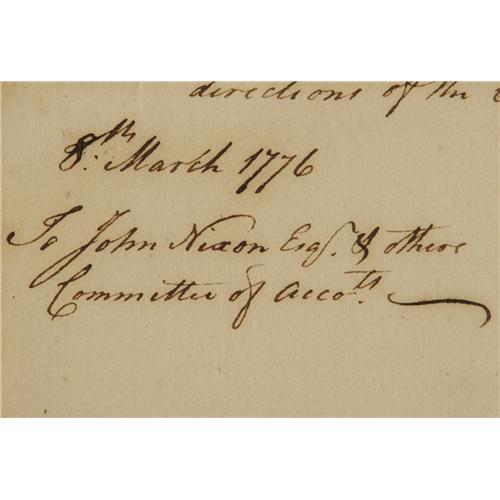 directions of the
8.th March 1776
To John Nixon Esq.r & others
Committee of Acco.ts